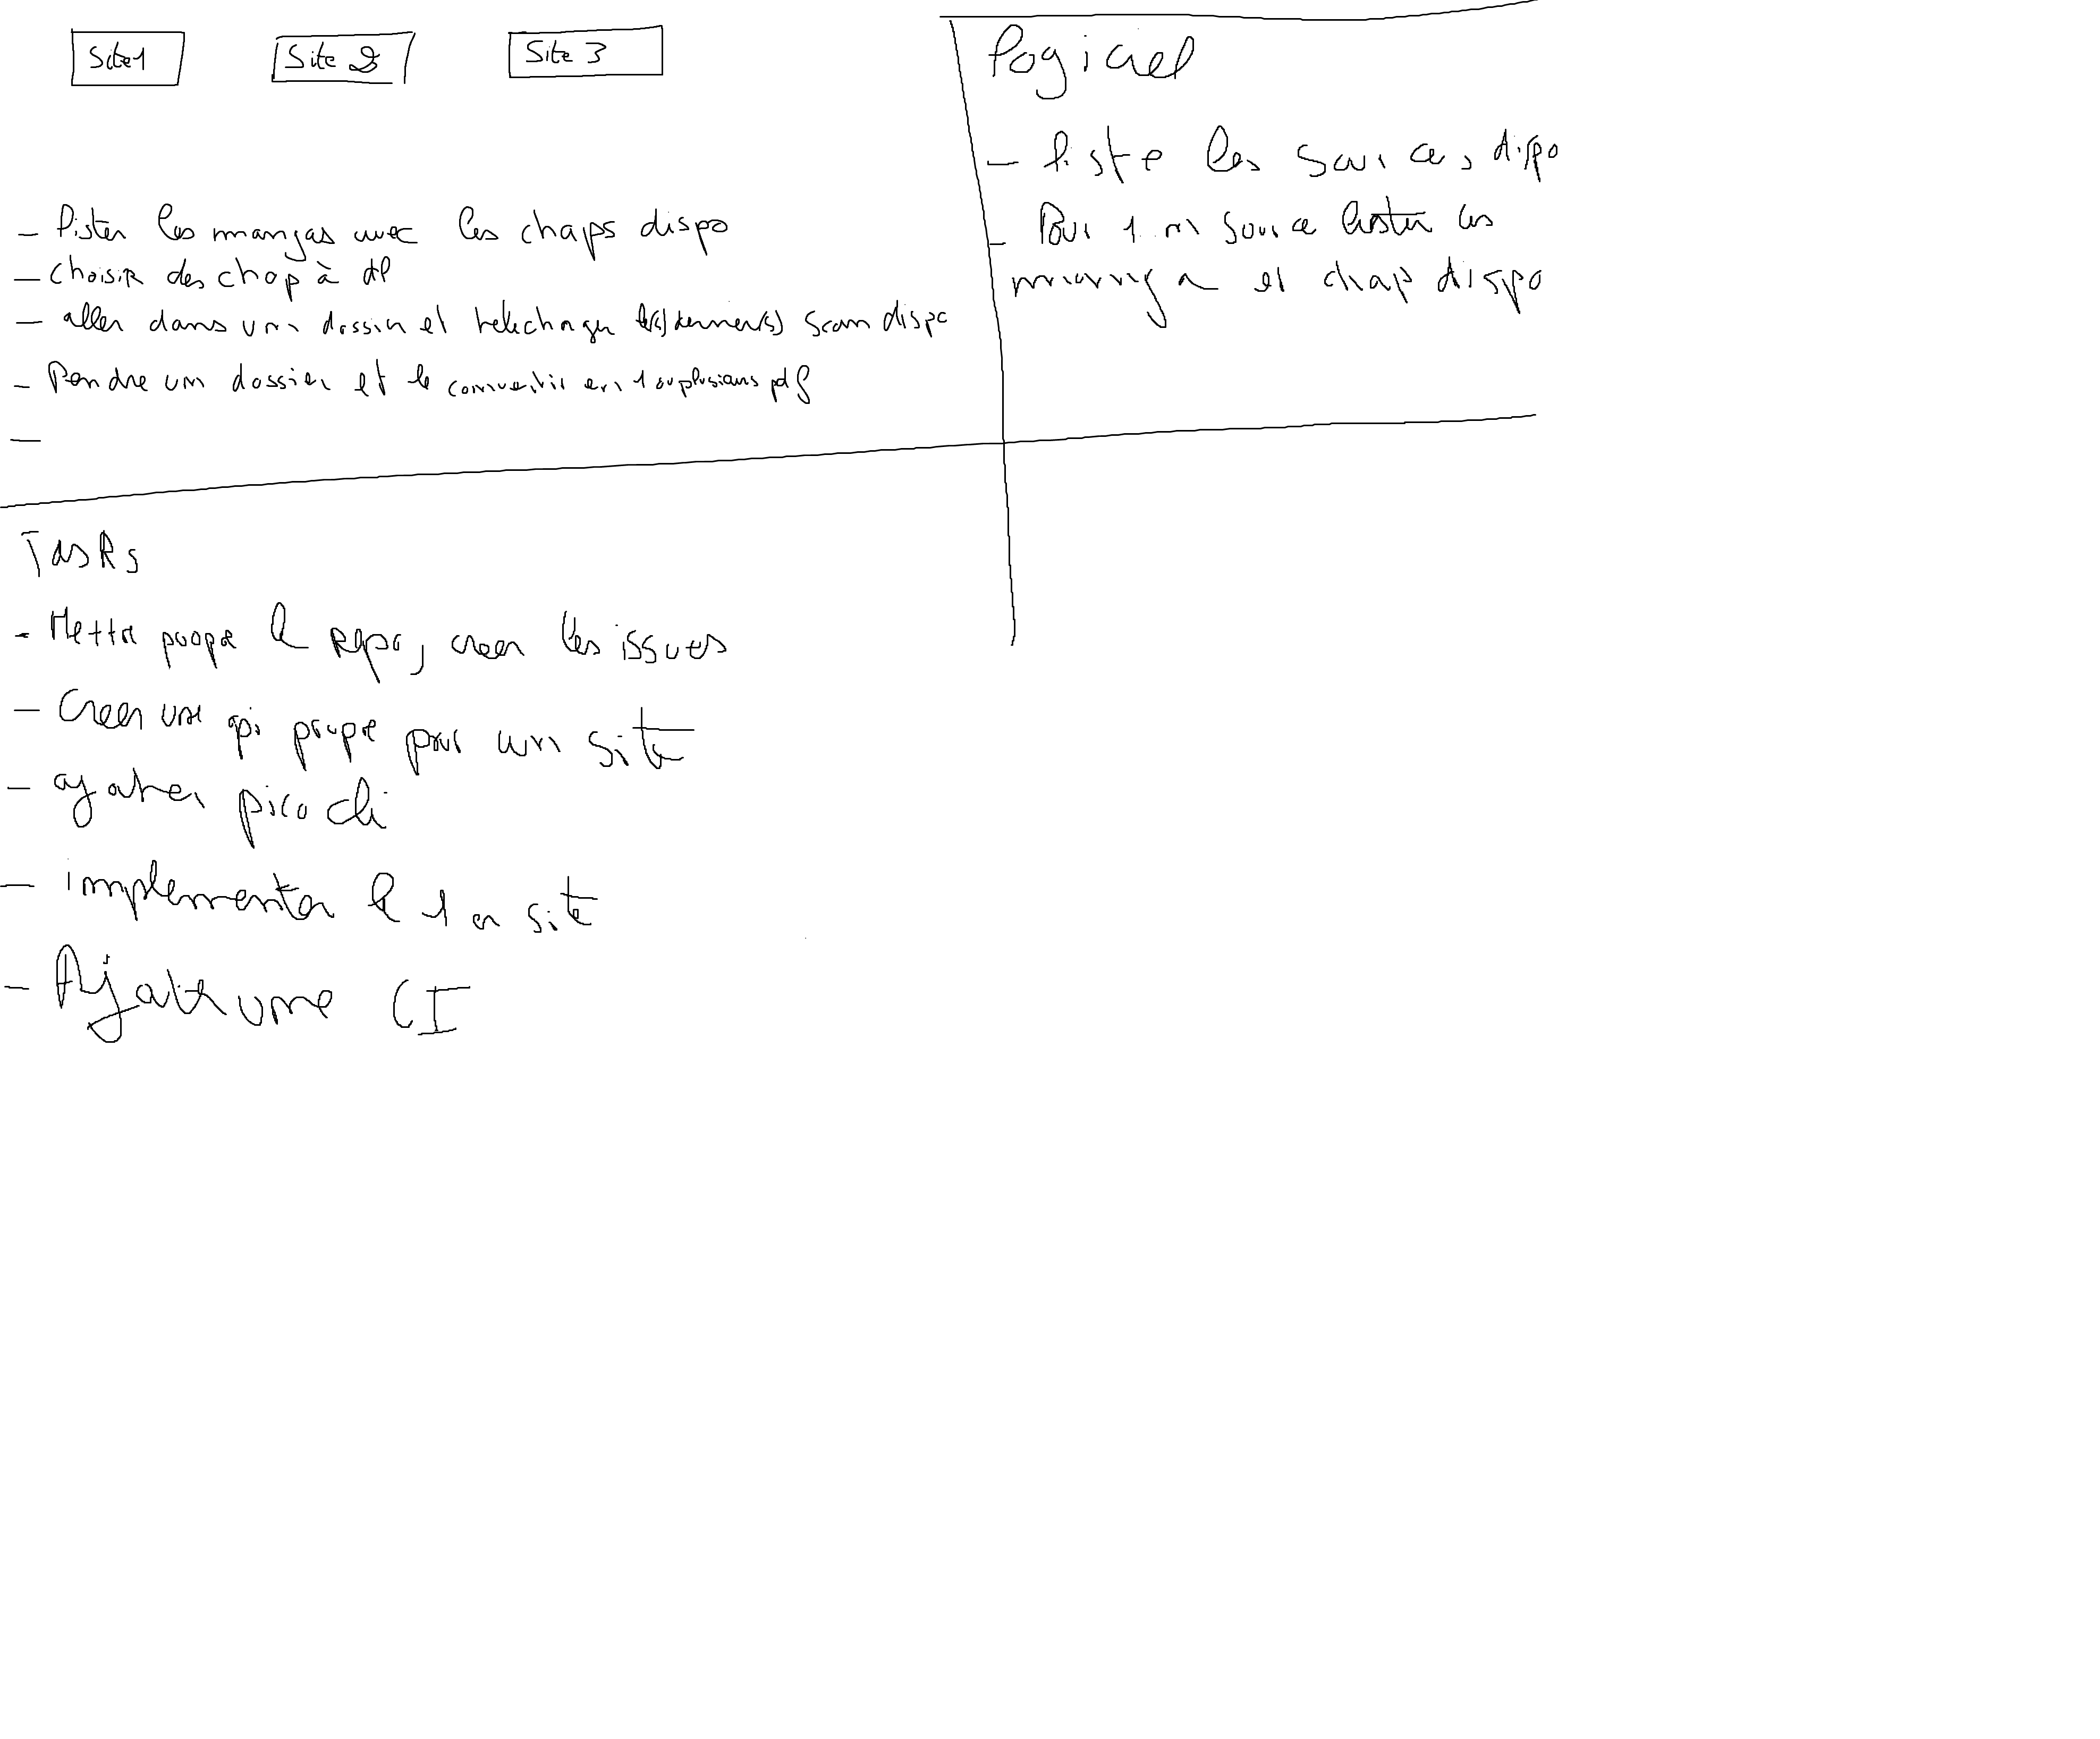 Site 1
Site 2
Site 3
- lister les mangas avec les chaps dispo
- choisir des chap à dl
- aller dans un dossier et telecharger le(s) dernier(s) scan dispo
- Prendre un dossier et le convertir en 1 ou plusieurs pdf
-
logiciel
- liste les sources dispo
- Pour 1 source lister les
manga et chap dispo
Tasks
- Mettre propre le repo, creer les issues
- Creer une api propre pour un site
- ajouter picocli
- implementer le 1er site
- Ajouter une CI